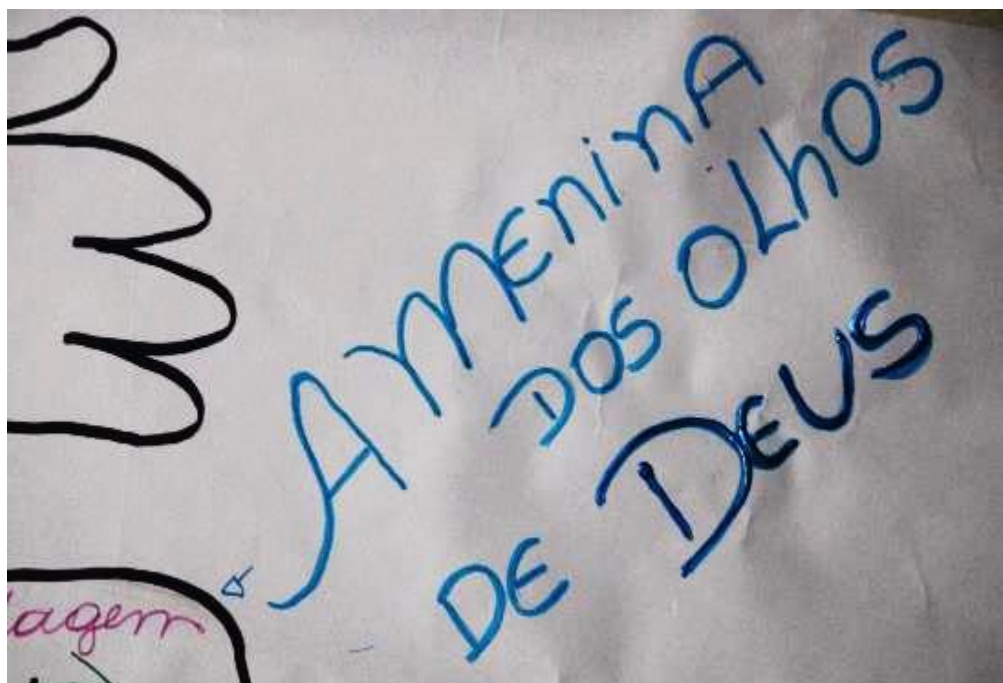 A MEninA
DOS OLhOS
DE DEUS